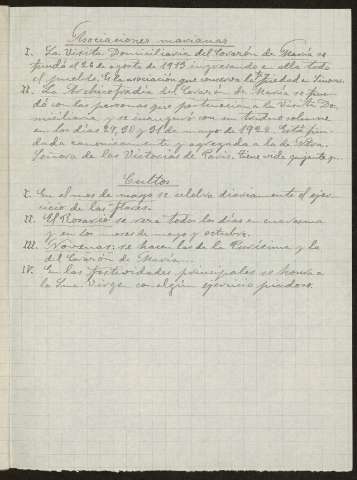 Asociaciones marianas
I. La Visita Domiciliaria del Corazón de María se
fundó el 26 de agosto de 1913 ingresando en ella todo
el pueblo. Es la asociación que conserva la piedad en
II. La Archicofradía del Corazón de María se fun-
dó con las personas que pertenecían a la Visita Do-
miciliaria, y se inauguró con un triduo solemne
en los días 29, 30 y 31 de mayo de 1922. Está fun-
dada canonicamente y agregada a la de Ntra.
Señora de las Victorias de Paris. Tiene vida
Cultos
I. En el mes de mayo se celebra diariamente el ejer-
cicio de las flores.
II. El Rosario se reza todos los días en cuaresma
y en los meses de mayo y octubre.
III. Novenas: se hacen las de la Purísima y la
del Corazón de María
IV. En las festividades principales se honra a
la Sma. Virgen con algún ejercicio piadoso.